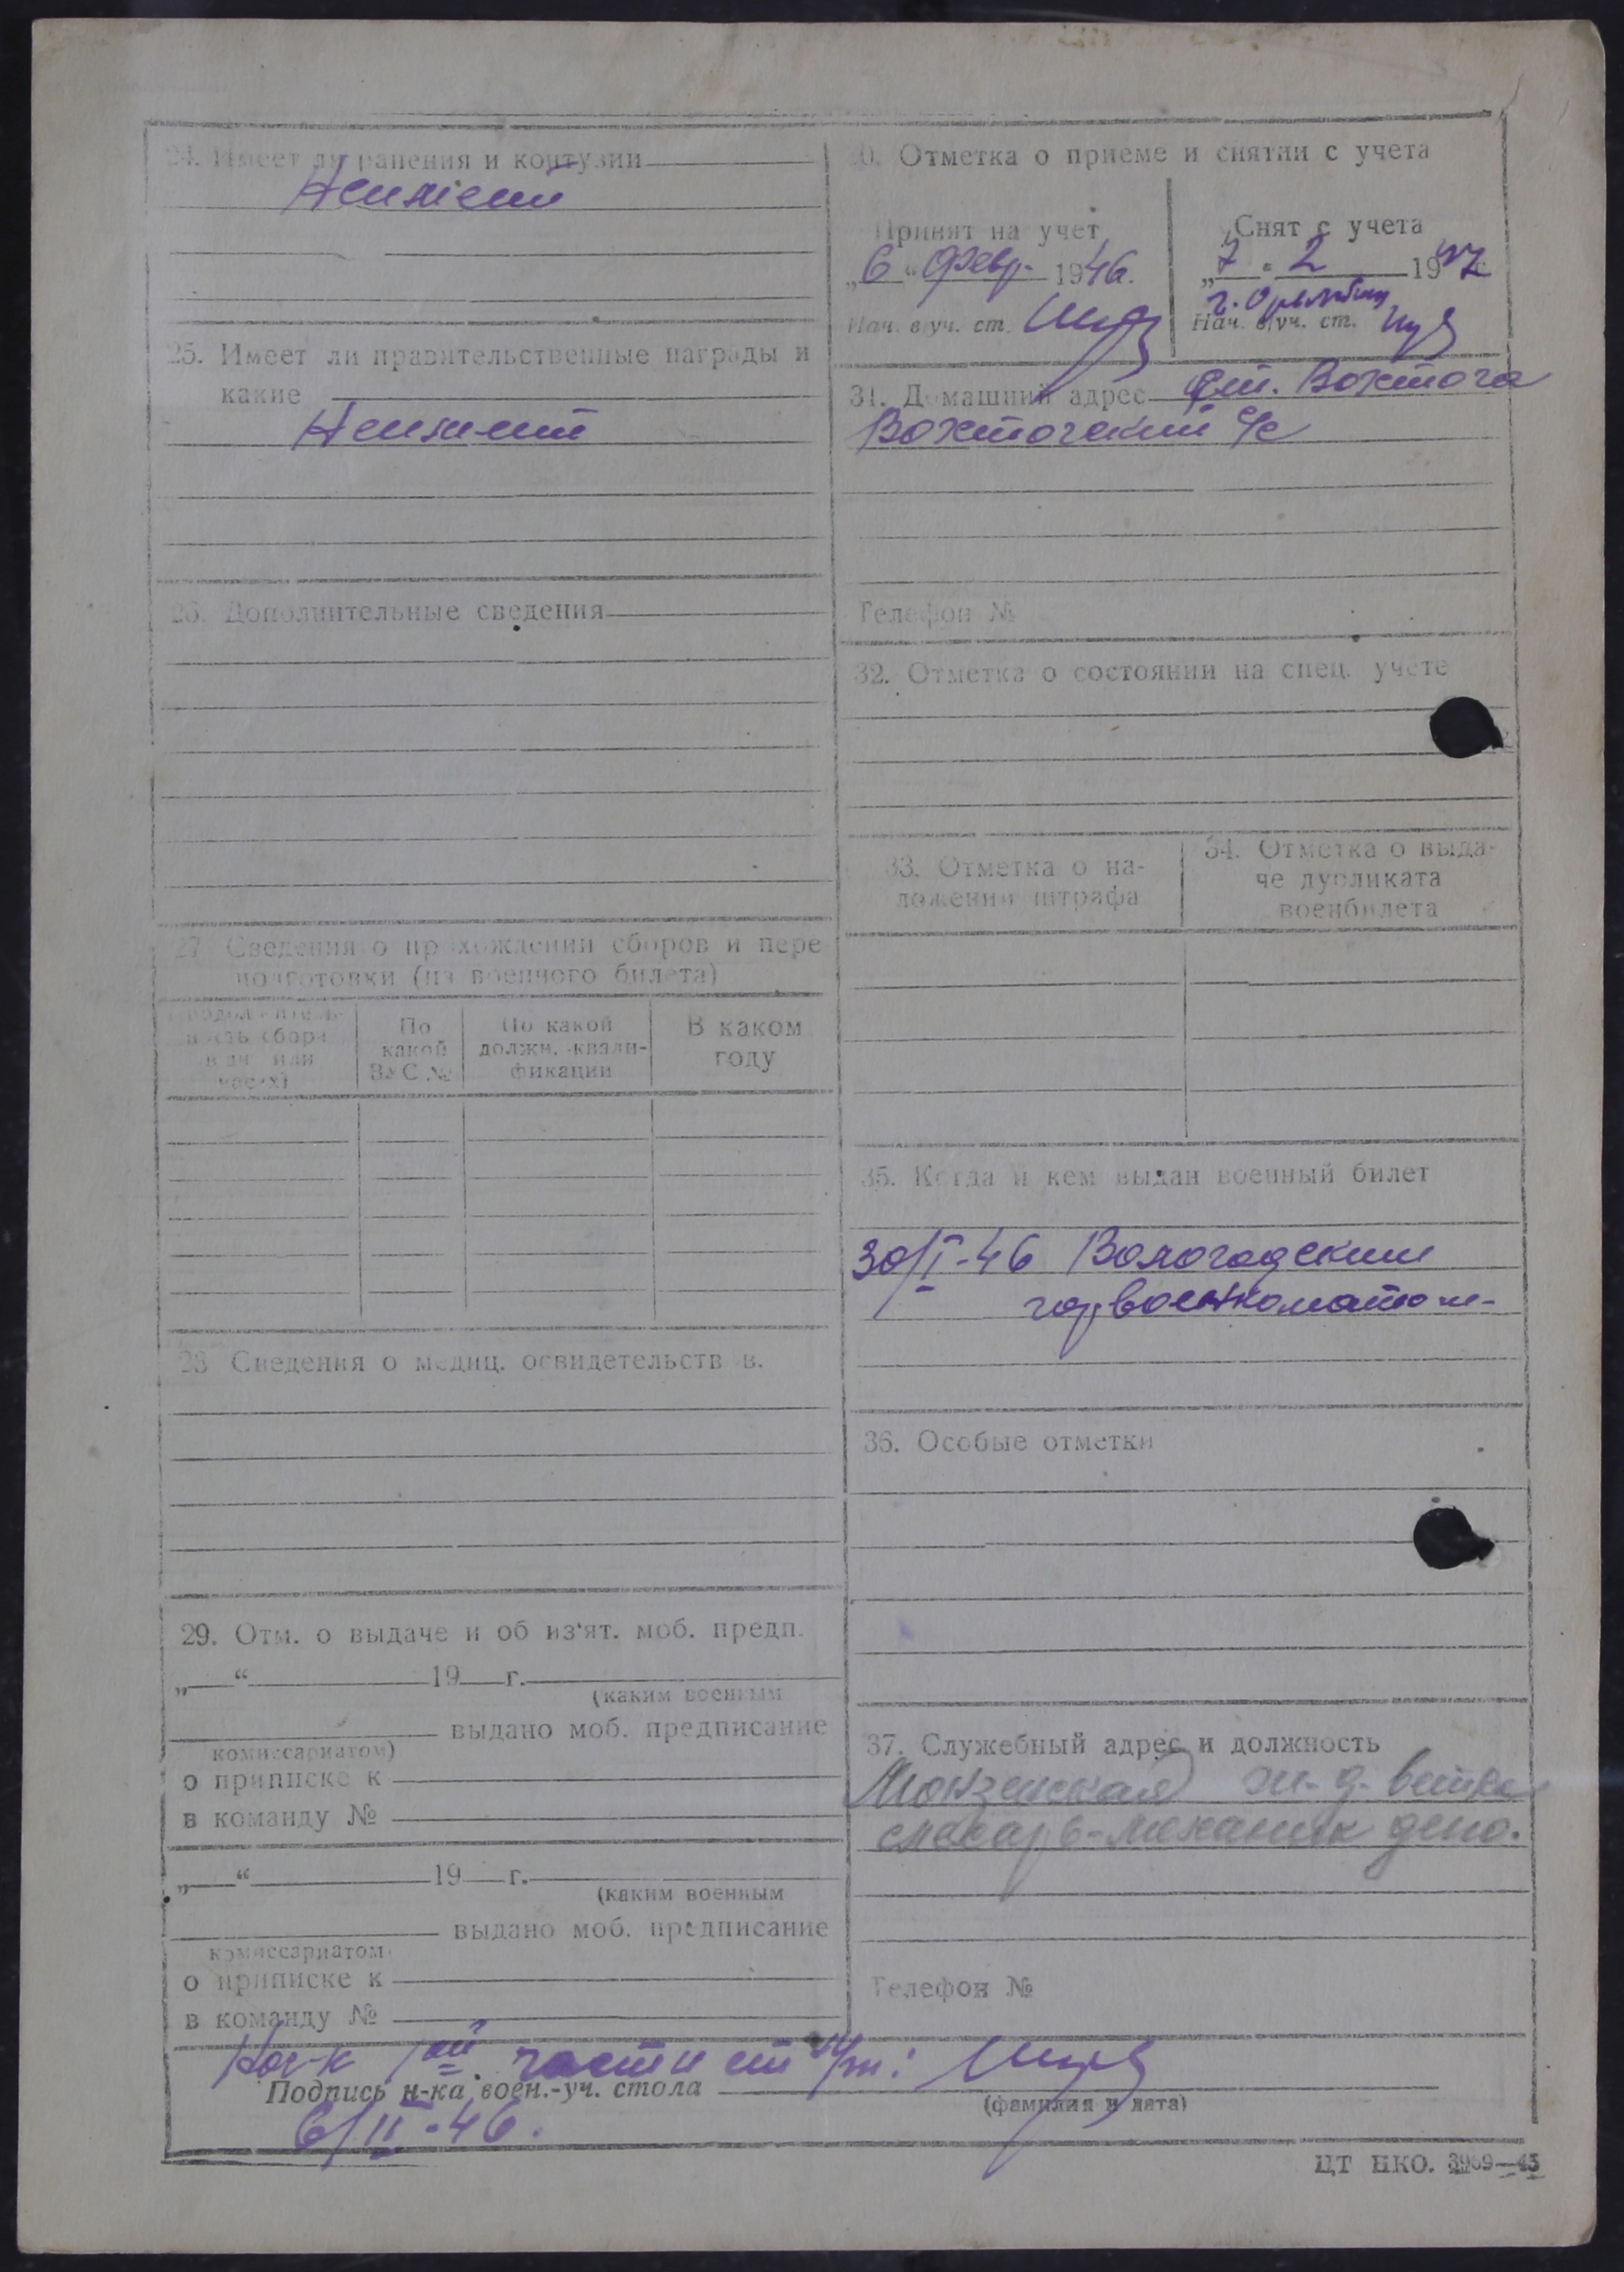 24. Имеет ли ранения и контузии
Неимеет
25. Имеет ли правительственные награды и
какие
Неимеет
26. Дополнительные сведения
27 Сведения о прохождении сборов и пере
подготовки (из военного билета)
По какой ВУС №
По какой должн. -квали-фикации
В каком году
28 Сведения о медиц. освидетельств в.
29. Отм. о выдаче и об из'ят. моб. предп.
„ “ 19 г.
(каким военным
выдано моб. предписание
комиссариатом)
о приписке к
в команду №
„ “ 19 г.
(каким военным
выдано моб. предписание
комиссариатом
о приписке к
в команду №
30. Отметка о приеме и снятии с учета
Принят на учет
„6 “ Февр. 1946.
Нач. в/уч. ст.
Снят с учета
„7 “ 2 1947
Нач. в/уч. ст.
31. Домашний адрес ст. Вохтога
Вохтогский с/с
Телефон №
32. Отметка о состоянии на спец. учете
33. Отметка о на-
ложении штрафа
34. Отметка о выда-
че дубликата
военбилета
35. Когда и кем выдан военный билет
30/I-46 Вологодским
горвоенкоматом-
36. Особые отметки
37. Служебный адрес и должность
Монзенская ж.д. ветка
слесарь-механик депо.
Телефон №
Нач-к 1ой части ст
Подпись н-ка воен.-уч. стола
(фамилия и дата)
6/II-46.
ЦТ НКО. 3969—45